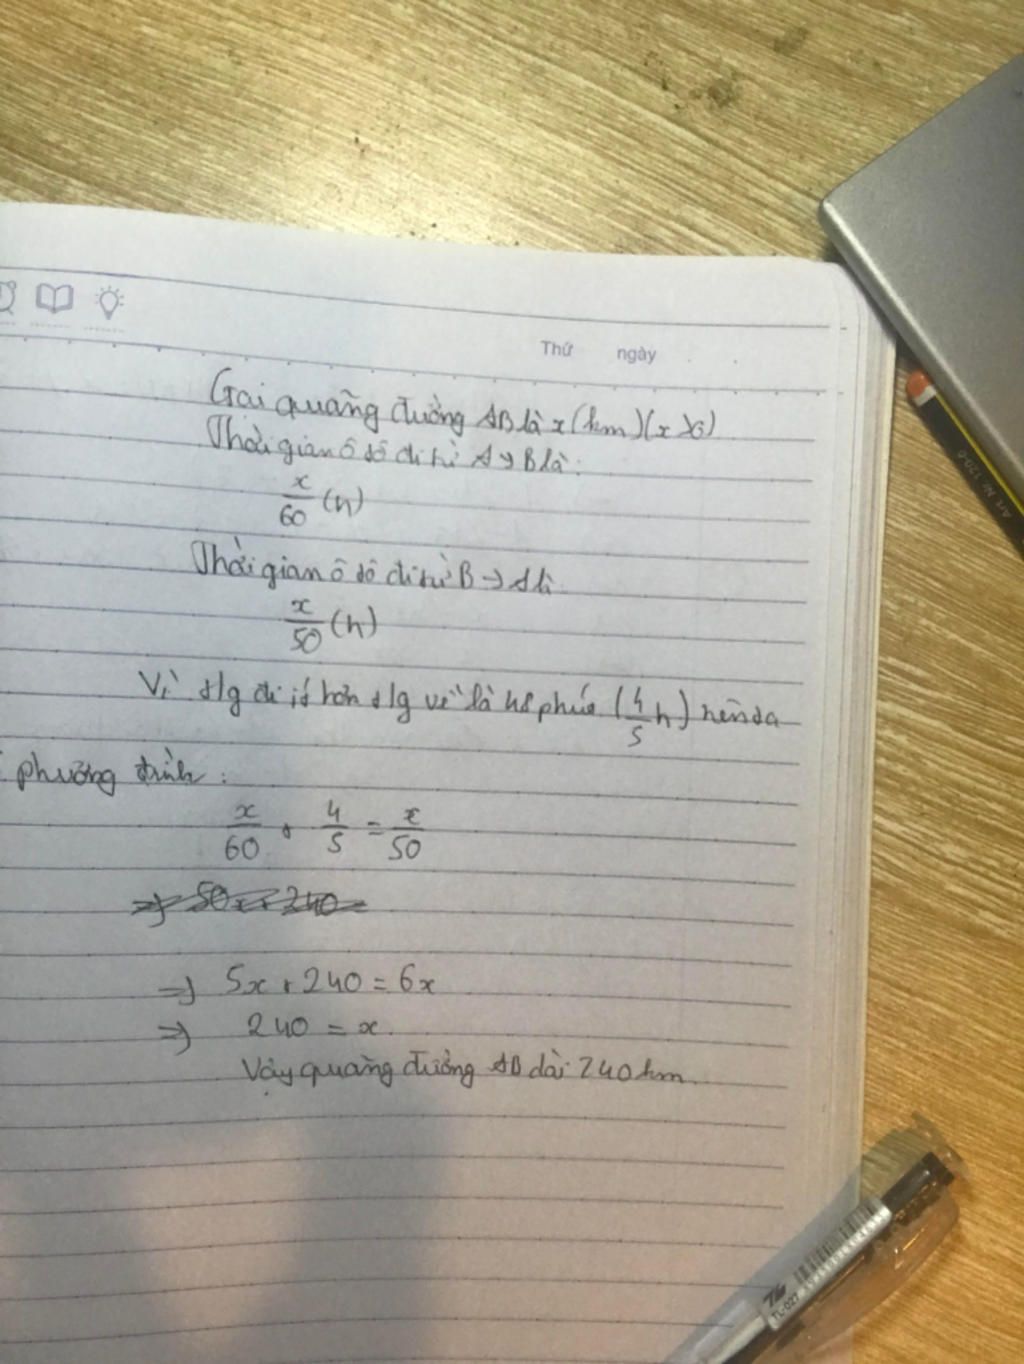 Thứ ngày
Gọi quãng đường AB là x (km) (x > 0)
Thời gian ô tô đi từ A → B là:
x/60 (h)
Thời gian ô tô đi từ B → A là
x/50 (h)
Vì t/g đi ít hơn t/g về là 48 phút (4/5 h) nên ta
phương trình:
x/60 + 4/5 = x/50
=> 50x + 240 =
=> 5x + 240 = 6x
=> 240 = x.
Vậy quãng đường AB dài 240 km.
Art. Nr. 120-6
TL-027